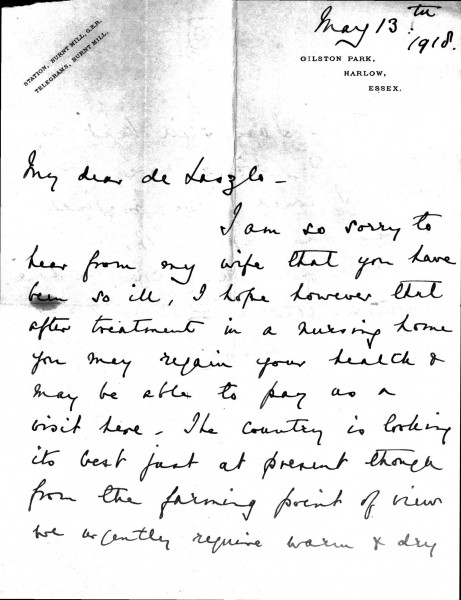 May 13th
1918.
STATION, BURNT MILL, G.E.R.
TELEGRAMS, BURNT MILL.
GILSTON PARK,
HARLOW,
ESSEX.
My dear de Laszlo -
I am so sorry to
hear from my wife that you have
been so ill, I hope however that
after treatment in a nursing home
you may regain your health &
may be able to pay us a
visit here - The country is looking
its best just at present though
from the farming point of view
we urgently require warm & dry